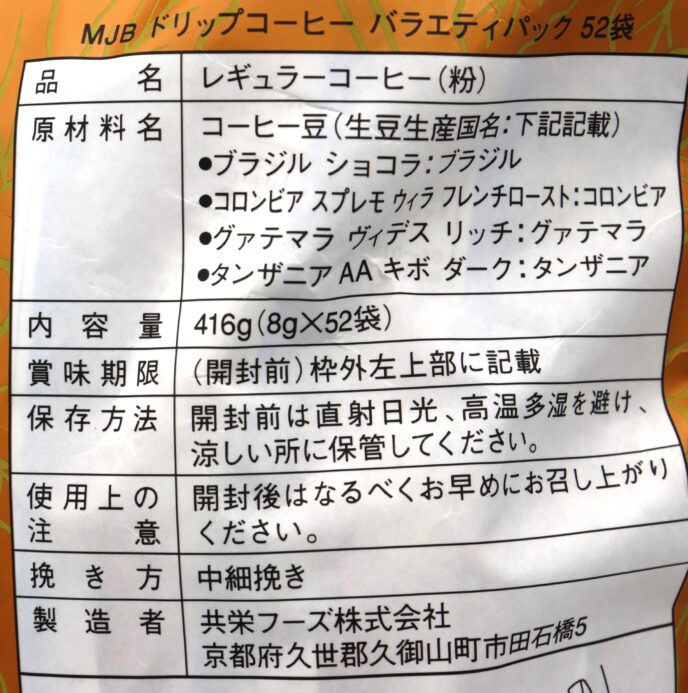 MJB ドリップコーヒー バラエティパック 52袋
品名 レギュラーコーヒー(粉)
原材料名 コーヒー豆(生豆生産国名:下記記載)
●ブラジル ショコラ:ブラジル
●コロンビア スプレモ ウィラ フレンチロースト:コロンビア
●グァテマラ ヴィデス リッチ:グァテマラ
●タンザニアAA キボ ダーク:タンザニア
内容量 416g(8g×52袋)
賞味期限 (開封前)枠外左上部に記載
保存方法 開封前は直射日光、高温多湿を避け、
涼しい所に保管してください。
使用上の 開封後はなるべくお早めにお召し上がり
注意 ください。
挽き方 中細挽き
製造者 共栄フーズ株式会社
京都府久世郡久御山町市田石橋5